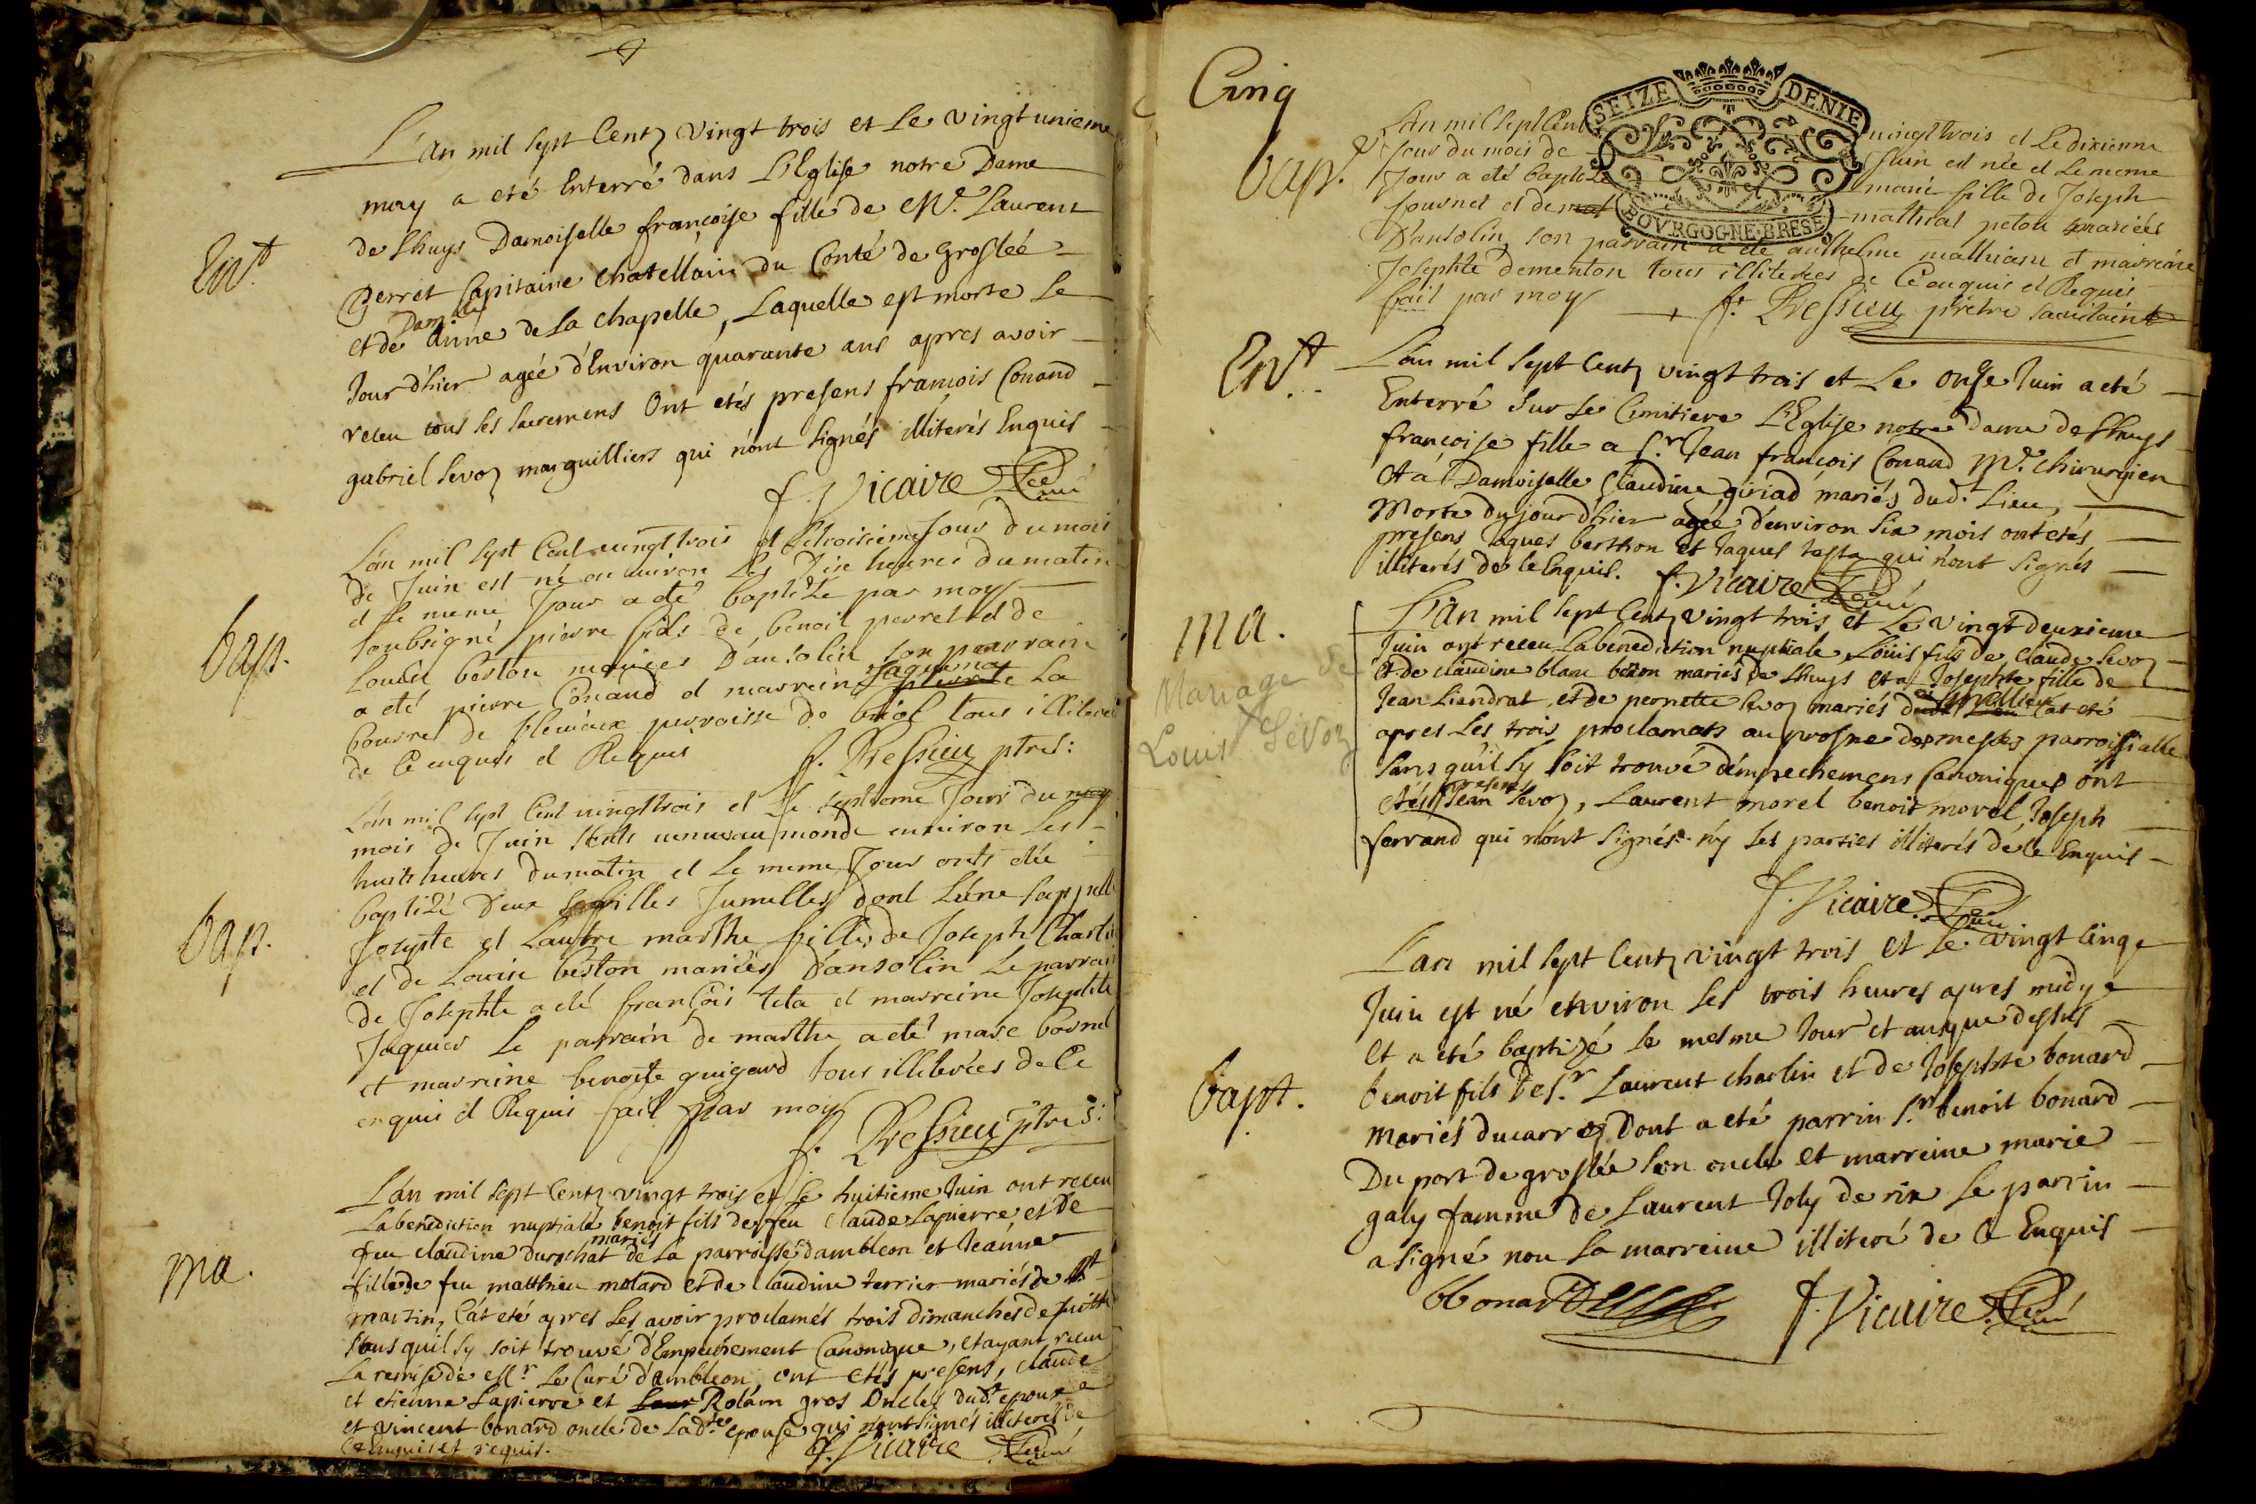 4
L'an mil sept Centz vingt trois et Le vingtunieme
may a eté Enterré dans L'Eglise notre Dame
Ent.
de Lhuys Damoiselle françoise fille de Mr. Laurent
Perret Capitaine Chatellain du Conté de Groslée
et de Damlle Anne de La Chapelle, Laquelle est morte Le
Jour d'hier agée d'Environ quarante ans apres avoir
receu tous les sacremens Ont etés presens francois Conand
gabriel Sevoz marguilliers qui n'ont signés illiterés Enquis
f. Vicaire Curé
L'an mil sept Cent vingt trois et Le troisieme Jour du mois
de Juin est né on environ Les dix heures du matin
et Le meme Jour a été baptizé par moy
bap.
soubsigné pierre fils de benoit perret et de
Louise beston mariées D'ansolin son parrain
a eté pierre Conand et marreine Jaquema La
de Ce enquis et Requis f. Pressieu ptres:
L'an mil sept Cent vingt trois et Le septieme Jour du may
mois de Juin sents venues au monde environ Les
huit heures du matin et Le meme Jour onts etée
baptizé Deux filles Jumelles dont L'une sappelle
bap.
Josepte et Lautre marthe filles de Joseph Charlin
et de Louise beston mariées D'ansolin Le parrain
de Josephte a eté françois teta et marreine Josephte
Jaquier Le parrain de marthe a eté marc
et marreine benoite guigard tous illiterées de Ce
enquis et Requis fait par moy
f. Pressieu ptres:
L'an mil sept Centz vingt trois et Le huitieme Juin ont receu
La benediction nuptiale benoit fils de feu Claude Lapierre, et De
feu Claudine Durochat mariés de La parroisse d'ambleon et Jeanne
ma.
fille de feu matthieu molard et de Claudine terrier mariés de st
martin, C'at eté apres Les avoir proclamés trois dimanches de suitte
sans quil sy soit trouvé d'Empechement Canonique, et ayant receu
La remise de Mr. Le Curé d'ambleon, ont etés presens, Claude
et etienne Lapierre et Rolain gros Oncles dudt. epoux
et vincent bonard oncle de Ladte. epouse qui n'ont signés illiterés de
Ce Enquis et requis. f. Vicaire Curé
Cinq
SEIZE DENIE
BOVRGOGNE·BRESE
L'an mil sept Cent vingt trois et Le dixieme
Jour du mois de Juin est née et Le meme
bap.
Jour a eté baptizé marie fille de Joseph
Journet et de mathiat peton mariées
D'ansolin, son parrain a eté anthelme mathieu et marreine
Josephte dementon tous illiterées de Ce enquis et Requis
fait par moy f. Pressieu prêtre
Ent.
L'an mil sept Centz vingt trois et Le onze Juin a eté
Enterré sur Le Cimitiere L'Eglise notre dame de Lhuys
françoise fille a Sr. Jean francois Conand Mr. Chirurgien
et a Damoiselle Claudine giriad mariés dud. Lieu,
Morte du jour d'hier agée d'environ six mois ont etés
presens Jaques berthon et Jaques testa qui n'ont signés
illiterés de Ce Enquis. f. Vicaire Curé
ma.
L'An mil sept Centz vingt trois et Le vingt deuxieme
Juin ont receu La benediction nuptiale Loüis fils de Claude Sevoz
et de Claudine blanc beton mariés de Lhuys et a Josephte fille de
Mariage de
Louis Sevoz
Jean Liandrat, et de pernette Sevoz mariés C'at eté
apres Les trois proclamats au prosne des messes parroissialle
Sans quil sy soit trouvé d'Emprechemens Canoniques ont
etés presens Jean Sevoz, Laurent morel benoit morel, Joseph
ferrand qui n'ont signés ny Les parties illiterés de Ce Enquis
f. Vicaire Curé
L'an mil sept Centz vingt trois et Le vingt Cinq
Juin est né environ Les trois heures apres midy
et a eté baptizé Le mesme Jour et an que dessus
bapt.
benoit fils De Sr. Laurent charlin et de Josephte bonard
Mariés ducarroz Dont a eté parrin Sr. benoit bonard
Du port de groslée son oncle et marreine marie
galy famme de Laurent Joly de rix Le parrin
a signé non La marreine illiteré de Ce Enquis
bbonard f. Vicaire Curé